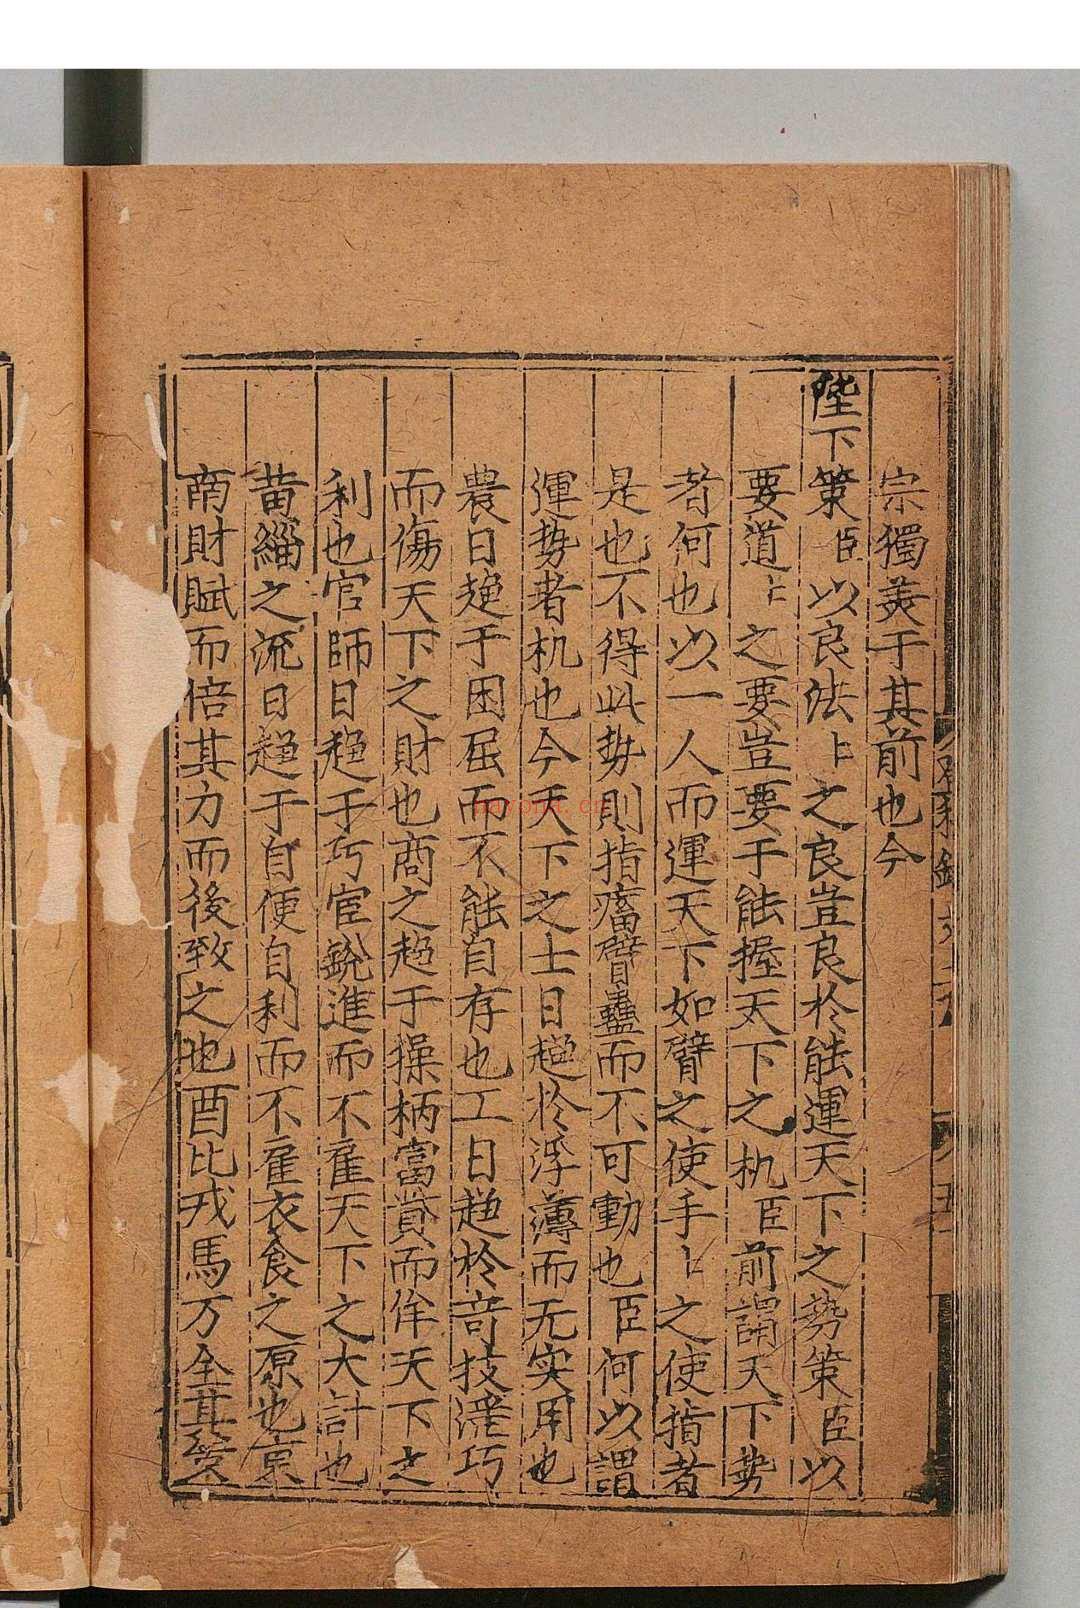 宗獨羙于其前也今
陛下策臣以良法〻之良豈良於能運天下之勢策臣以
要道〻之要豈要于能握天下之机臣前謂天下势
者何也以一人而運天下如臂之使手〻之使指者
是也不得此势則指癅臂蠱而不可動也臣何以謂
運势者机也今天下之士日趍於浮薄而无实用也
農日趍于困屈而不能自存也工日趍於竒技滛巧
而傷天下之財也商之趍于操柄富貲而侔天下之
利也官師日趍于巧宦銳進而不雇天下之大計也
黄緇之流日趍于自便自利而不雇衣食之原也京
商財賦而倍其力而後致之也酉北戎馬万全其